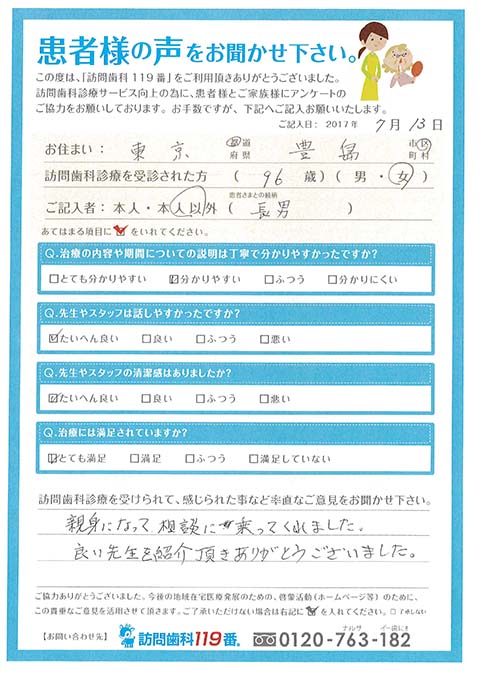 患者様の声をお聞かせ下さい。
この度は、「訪問歯科119番」をご利用頂きありがとうございました。
訪問歯科診療サービス向上の為に、患者様とご家族様にアンケートの
ご協力をお願いしております。お手数ですが、下記へご記入お願いいたします。
ご記入日： 2017年 7月 13日
お住まい： 東京 都道府県 豊島 市区町村
訪問歯科診療を受診された方 （ 96 歳）（ 男 ・ 女 ）
患者さまとの続柄
ご記入者：本人・本人以外（ 長男 ）
あてはまる項目に☑をいれてください。
Q.治療の内容や期間についての説明は丁寧で分かりやすかったですか？
□とても分かりやすい ☑分かりやすい □ふつう □分かりにくい
Q.先生やスタッフは話しやすかったですか？
☑たいへん良い □良い □ふつう □悪い
Q.先生やスタッフの清潔感はありましたか？
☑たいへん良い □良い □ふつう □悪い
Q.治療には満足されていますか？
☑とても満足 □満足 □ふつう □満足していない
訪問歯科診療を受けられて、感じられた事など率直なご意見をお聞かせ下さい。
親身になって相談に乗ってくれました。
良い先生を紹介頂きありがとうございました。
ご協力ありがとうございました。今後の地域在宅医療発展のための、啓蒙活動（ホームページ等）のために、
この貴重なご意見を活用させて頂きます。ご了承いただけない場合は右記に☑を入れてください。□了承しない
【お問い合わせ先】 訪問歯科119番。 0120-763-182
ナルザ イー歯に